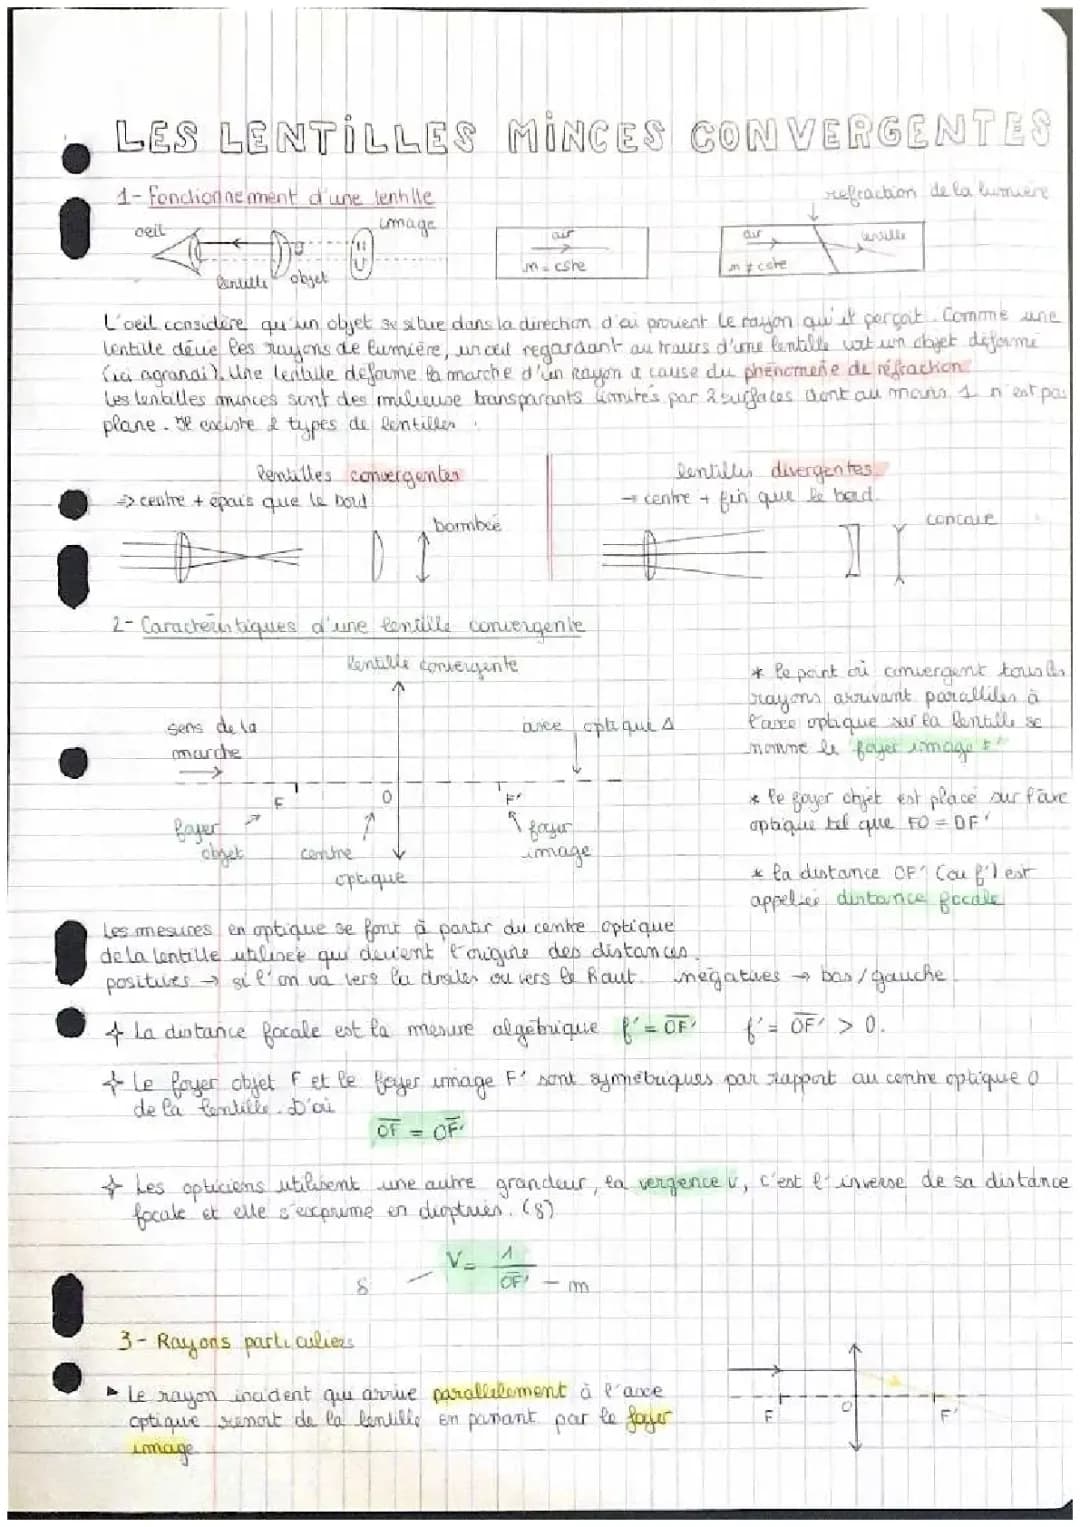 LES LENTILLES MINCES CONVERGENTES
1- Fonctionnement d'une lentille
refraction de la lumière
oeil
image
lentille
objet
air
n = cste
air
lentille
n ≠ cste
L'oeil considère qu'un objet se situe dans la direction d'où provient le rayon qu'il perçoit. Comme une
lentille dévie les rayons de lumière, un oeil regardant au travers d'une lentille voit un objet déformé
(ici agrandi). Une lentille déforme la marche d'un rayon à cause du phénomène de réfraction.
Les lentilles minces sont des milieux transparents limités par 2 surfaces dont au moins 1 n'est pas
plane. Il existe 2 types de lentilles :
lentilles convergentes
=> centre + épais que le bord
bombée
lentilles divergentes
→ centre + fin que le bord.
concave
2- Caractéristiques d'une lentille convergente
lentille convergente
sens de la
marche
axe optique Δ
F
O
F'
foyer
objet
centre
optique
foyer
image
* le point où convergent tous les
rayons arrivant parallèles à
l'axe optique sur la lentille se
nomme le "foyer image F'"
* le foyer objet est placé sur l'axe
optique tel que FO = OF'
* la distance OF' (ou f') est
appelée distance focale
Les mesures en optique se font à partir du centre optique
de la lentille utilisée qui devient l'origine des distances.
positives → si l'on va vers la droite ou vers le haut. négatives → bas/gauche.
+ La distance focale est la mesure algébrique f' = OF' f' = OF' > 0.
+ Le foyer objet F et le foyer image F' sont symétriques par rapport au centre optique O
de la lentille. D'où
OF = OF'
+ Les opticiens utilisent une autre grandeur, la vergence v, c'est l'inverse de sa distance
focale et elle s'exprime en dioptries. (δ)
δ — V = 1/OF' — m
3- Rayons particuliers
▸ Le rayon incident qui arrive parallèlement à l'axe
optique ressort de la lentille en passant par le foyer
image
F
O
F'